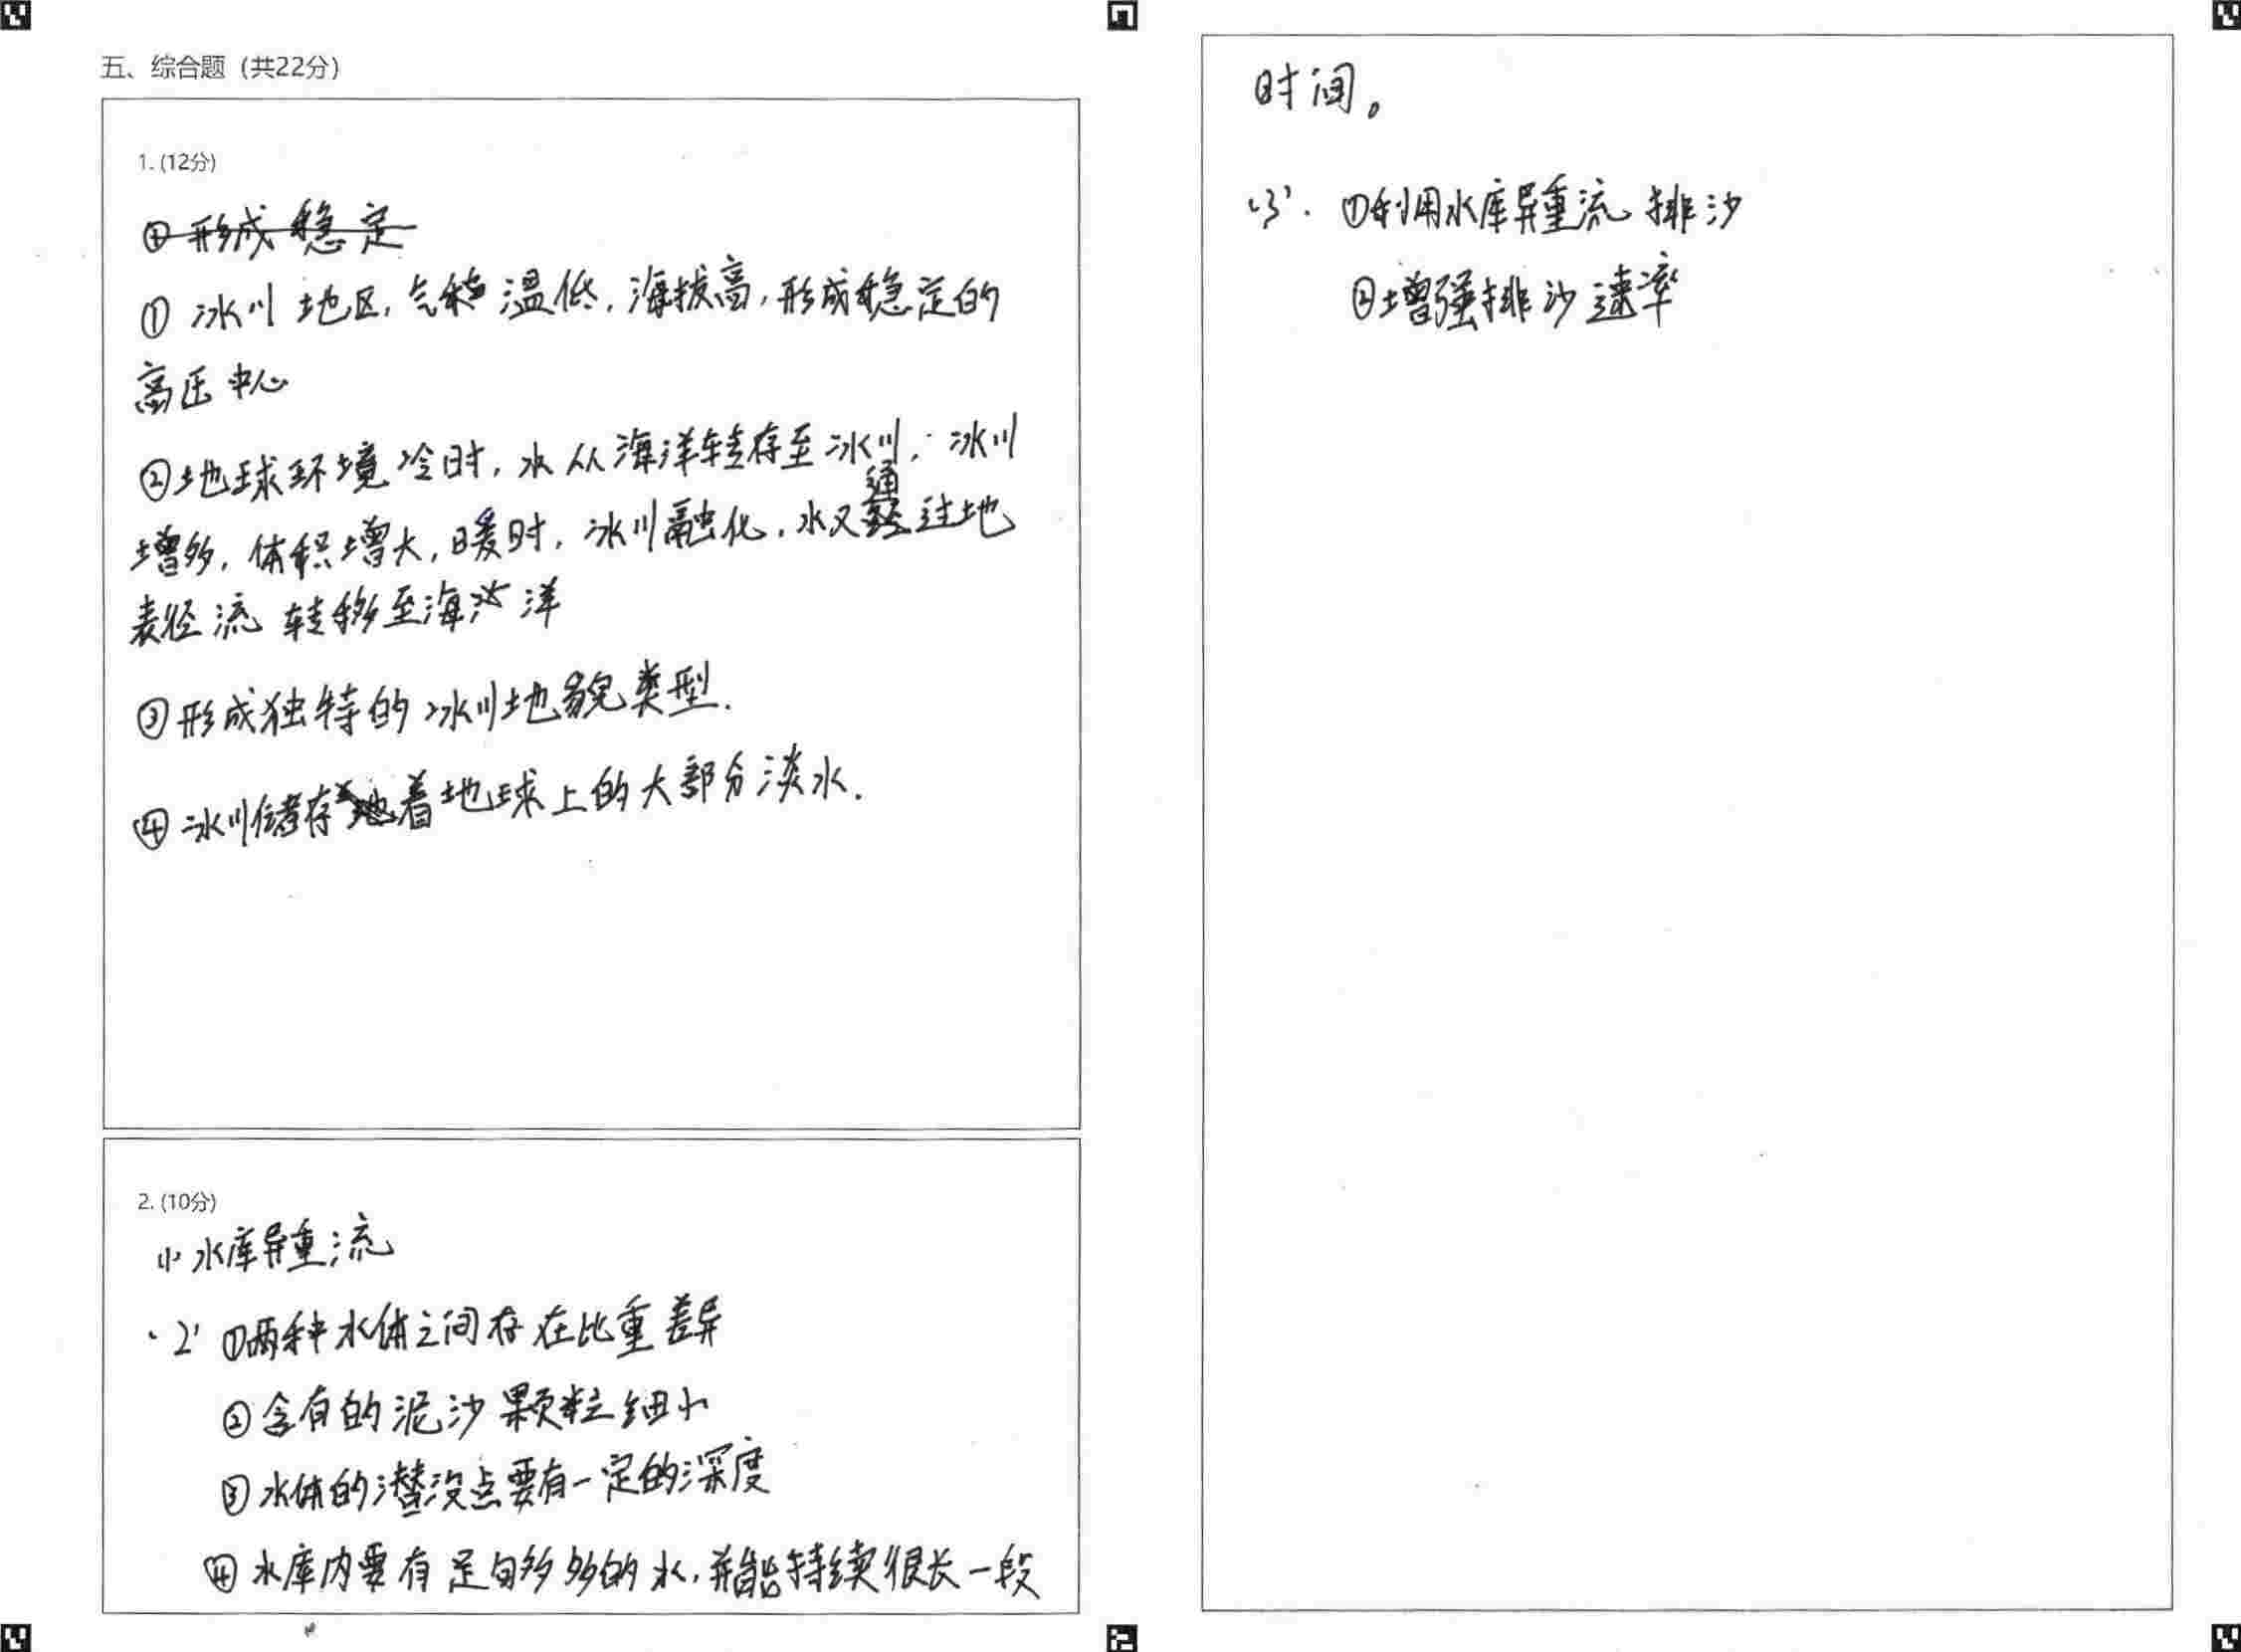 五、综合题（共22分）
1. (12分)
④形成稳定
① 冰川地区, 气温低, 海拔高, 形成稳定的
高压中心
②地球环境冷时, 水从海洋转存至冰川, 冰川
增多, 体积增大, 暖时, 冰川融化, 水又通过地
表径流转移至海洋
③形成独特的冰川地貌类型.
④冰川储存着地球上的大部分淡水.
2. (10分)
(1) 水库异重流
(2) ①两种水体之间存在比重差异
②含有的泥沙颗粒细小
③水体的潜没点要有一定的深度
④水库内要有足够多的水, 并能持续很长一段
时间。
(3). ①利用水库异重流排沙
②增强排沙速率